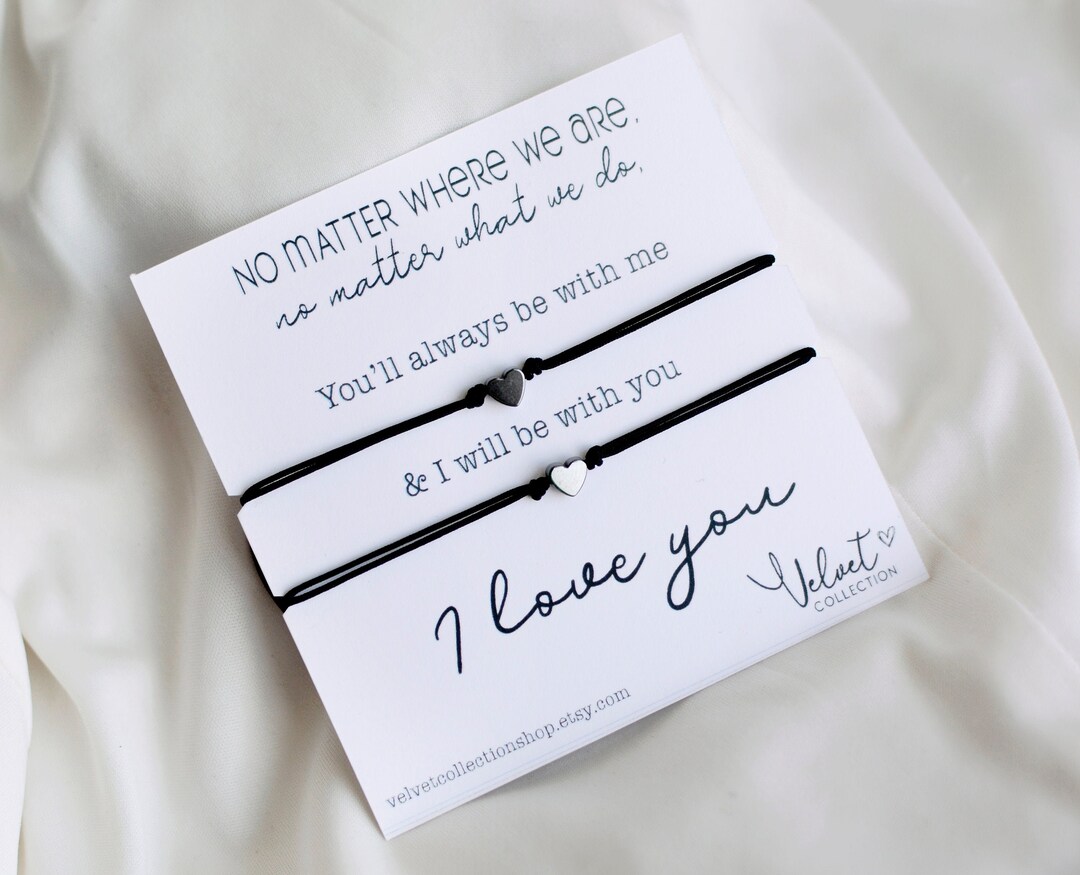 NO MATTER WHERE WE ARE,
no matter what we do,
You'll always be with me
& I will be with you
I love you
Velvet
COLLECTION
velvetcollectionshop.etsy.com